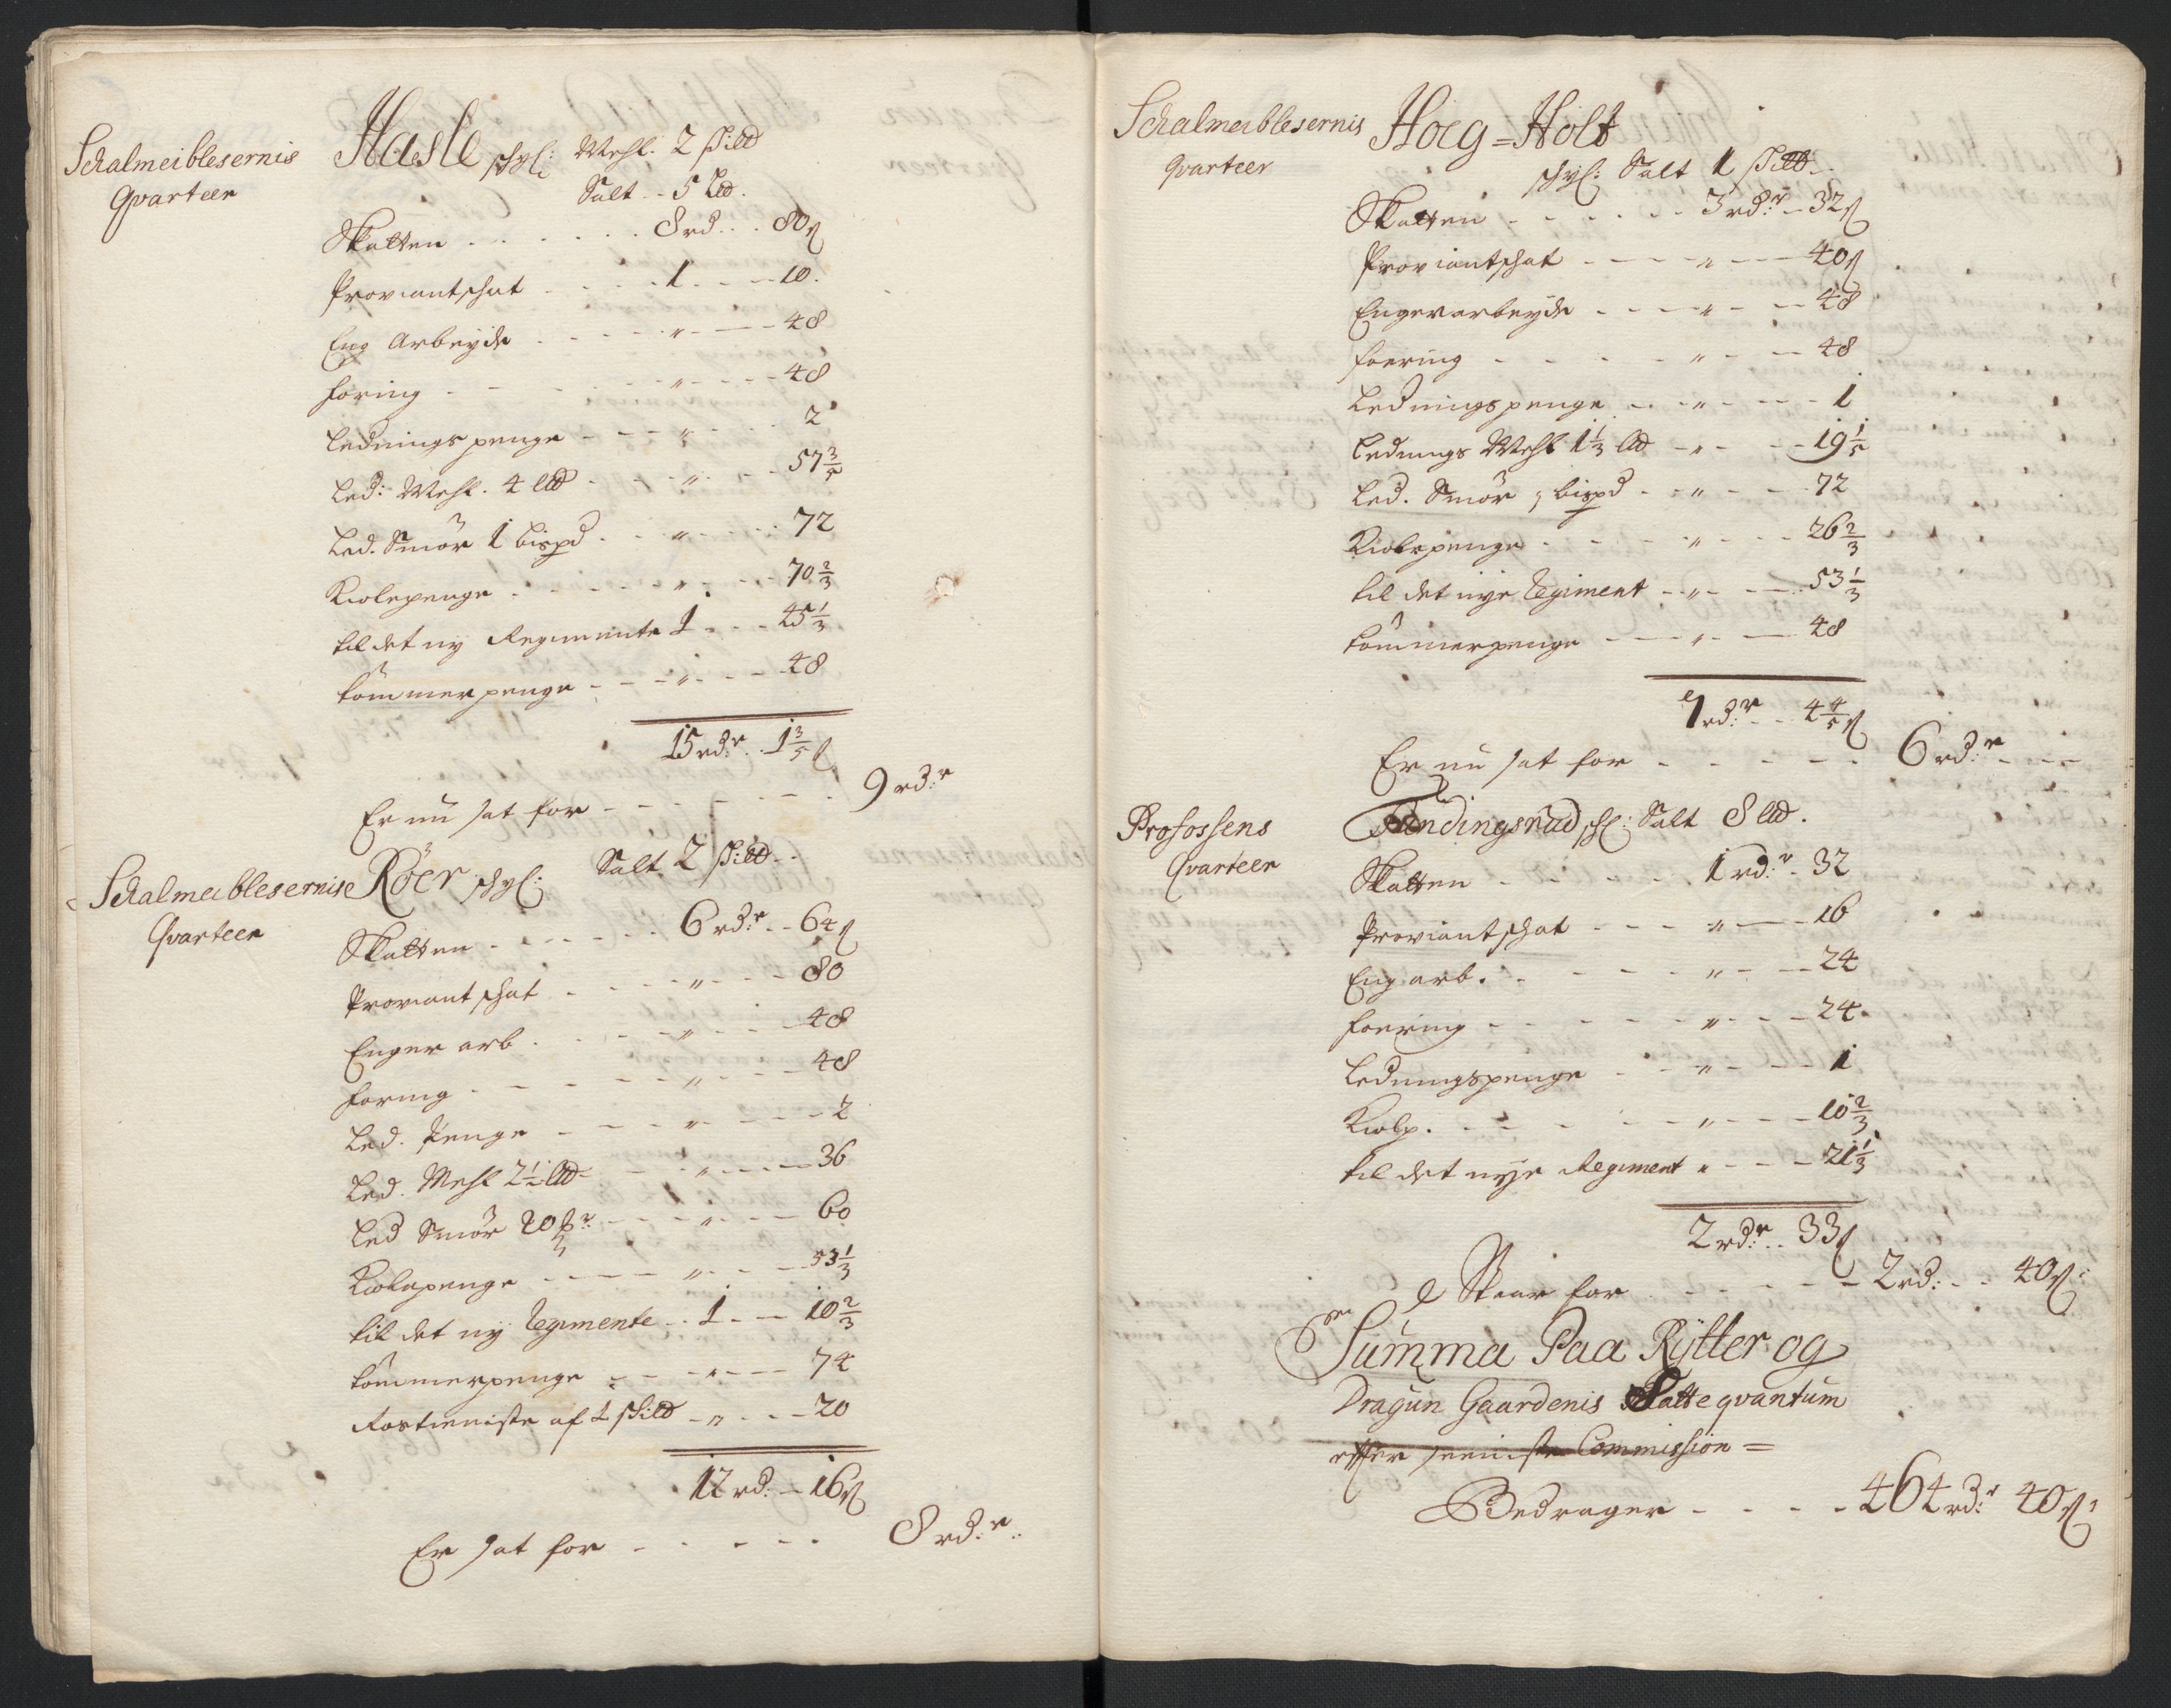 Schalmeiblesernis
Qvarteer
Hasle schyl: Mehl. 2 schild
Salt - 5 Lld.
Skatten - - - 8 rd. - 80 ß
Proviantschat - - - 1 - - 10.
Eng Arbeyde - - - " - - 48
foring - - - " - - 48
Lednings penge - - - " - - 2
Led: Mehl. 4 lld - - - " - - 57 3/5
Led. Smör 1 bispd - - - " - - 72
Kiolepenge - - - " - - 70 2/3
til det ny Regimente 1 - - - 45 1/3
tömmerpenge - - - " - - 48
15 rd:r - 1 3/5 ß
Er nu sat for - - - 9 rd:r
Schalmeiblesernise
Qvarteer
Röer schyl: Salt 2 schild - -
Skatten - - - 6 rd:r - - 64 ß
Proviant schat - - - " - - 80
Enger arb. - - - " - - 48
foring - - - " - - 48
Led. Penge - - - " - - 2
Led. Mehl 2 1/2 lld - - - " - - 36
Led Smör 20 - - - " - - 60
Kiolepenge - - - " - - 53 1/3
til det ny Regimente - - 1 - - 10 2/3
tömmerpenge - - - " - - 74
Rostieniste af 1 schild - " - - 20
12 rd: - 16 ß
Er sat for - - - 8 rd:r
Schalmeiblesernis
Qvarteer
Hoeg = Holt
schyl: Salt 1 schild -
Skatten - - - 3 rd:r - 32 ß
Proviantschat - - - " - - 40 ß
Engerarbeyde - - - " - - 48
foering - - - " - - 48
Ledningspenge - - - " - - 1
Lednings Mehl 1 1/3 lld - " - - 19 1/5
Led. Smör 1 bispd - - " - - 72
Kiolepenge - - - " - - 26 2/3
til det nye Regiment - " - - 53 1/3
tömmerpenge - - - " - - 48
7 rd:r - - 4 4/5 ß
Er nu sat for - - - 6 rd:r - - -
Profossens
Qvarteer
Findingsrud schl: Salt 8 lld.
Skatten - - - 1 rd:r - 32
Proviant schat - - - " - - 16
Eng arb. - - - " - - 24
foering - - - " - - 24
Ledningspenge - - - " - - 1
Kiolp. - - - " - - 10 2/3
til det nye Regiment " - - - 21 1/3
2 rd:r - - 33 ß
Staar for - - - 2 rd: - - 40 ß:
Summa Paa Rÿtter og
Dragun Gaardenis Skatte qvantum
efter seeniste Commission =
Bedrager - - - - 464 rd:r 40 ß: